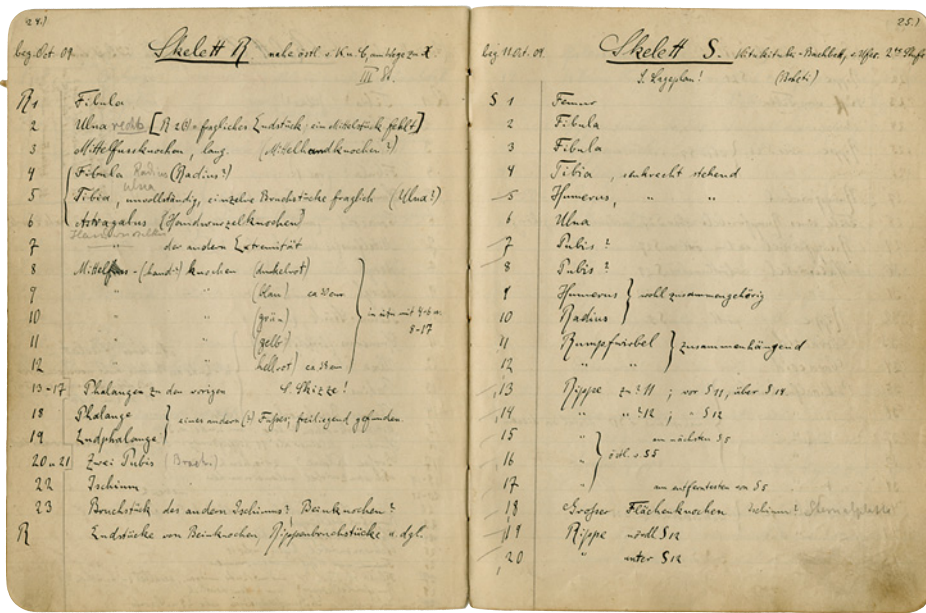 24.)
beg. Oct. 09. Skelett R nahe östl. v. K n. 6, am Wege zu X.
III St.
R 1 Fibula
2 Ulna rechts [R 20 = fragliches Endstück; ein Mittelstück fehlt]
3 Mittelfussknochen, lang. (Mittelhandknochen?)
4 Fibula Radius (Radius?)
ulna
5 Tibia, unvollständig, einzelne Bruchstücke fraglich (Ulna?)
6 Astragalus (Handwurzelknochen)
7 " der andern Extremität
8 Mittelfuss-(hand-?) knochen (dunkelrot)
9 " " (blau) ca 30 cm
10 " " (grün)
11 " " (gelb)
12 " " hellrot) ca 35 cm
in situ mit 4-6 u.
8-17
13-17 Phalangen zu den vorigen S. Skizze!
18 Phalange
19 Endphalange
eines andern (?) Fußes, freiliegend gefunden.
20 u 21 Zwei Pubis
22 Ischium
23 Bruchstück des andern Ischiums? Beinknochen?
R Endstücke von Beinknochen, Rippenbruchstücke u. dgl.
25.)
beg. 11 Oct. 09. Skelett S. Kitukituki-Bachbett, 2te Stufe
S. Lageplan! (Boheti)
S 1 Femur
2 Fibula
3 Fibula
4 Tibia, senkrecht stehend
5 Humerus, " "
6 Ulna
7 Pubis?
8 Pubis?
9 Humerus
10 Radius
wohl zusammengehörig
11 Rumpfwirbel
12 " "
zusammenhängend
13 Rippe zu ? 11 ; vor S 11, über S 14.
14 " " ? 12 ; " S 12
15 " am nächsten S 5
16 " östl. v. S 5
17 " am entferntesten von S 5
18 Grosser Flächenknochen Ischium? Sternalplatte
19 Rippe nördl S 12
20 " unter S 12